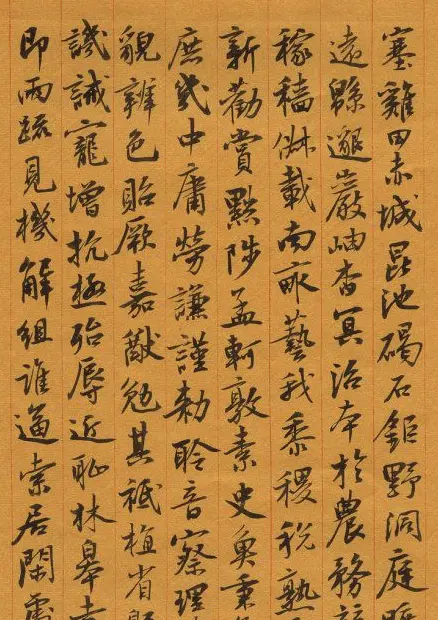 塞雞田赤城昆池碣石鉅野洞庭
遠緜邈巖岫杳冥治本於農務
稼穡俶載南畝藝我黍稷稅熟
新勸賞黜陟孟軻敦素史魚秉
庶幾中庸勞謙謹勅聆音察理
貌辨色貽厥嘉猷勉其祗植省
譏誡寵增抗極殆辱近恥林皋
即兩疏見機解組誰逼索居閑處